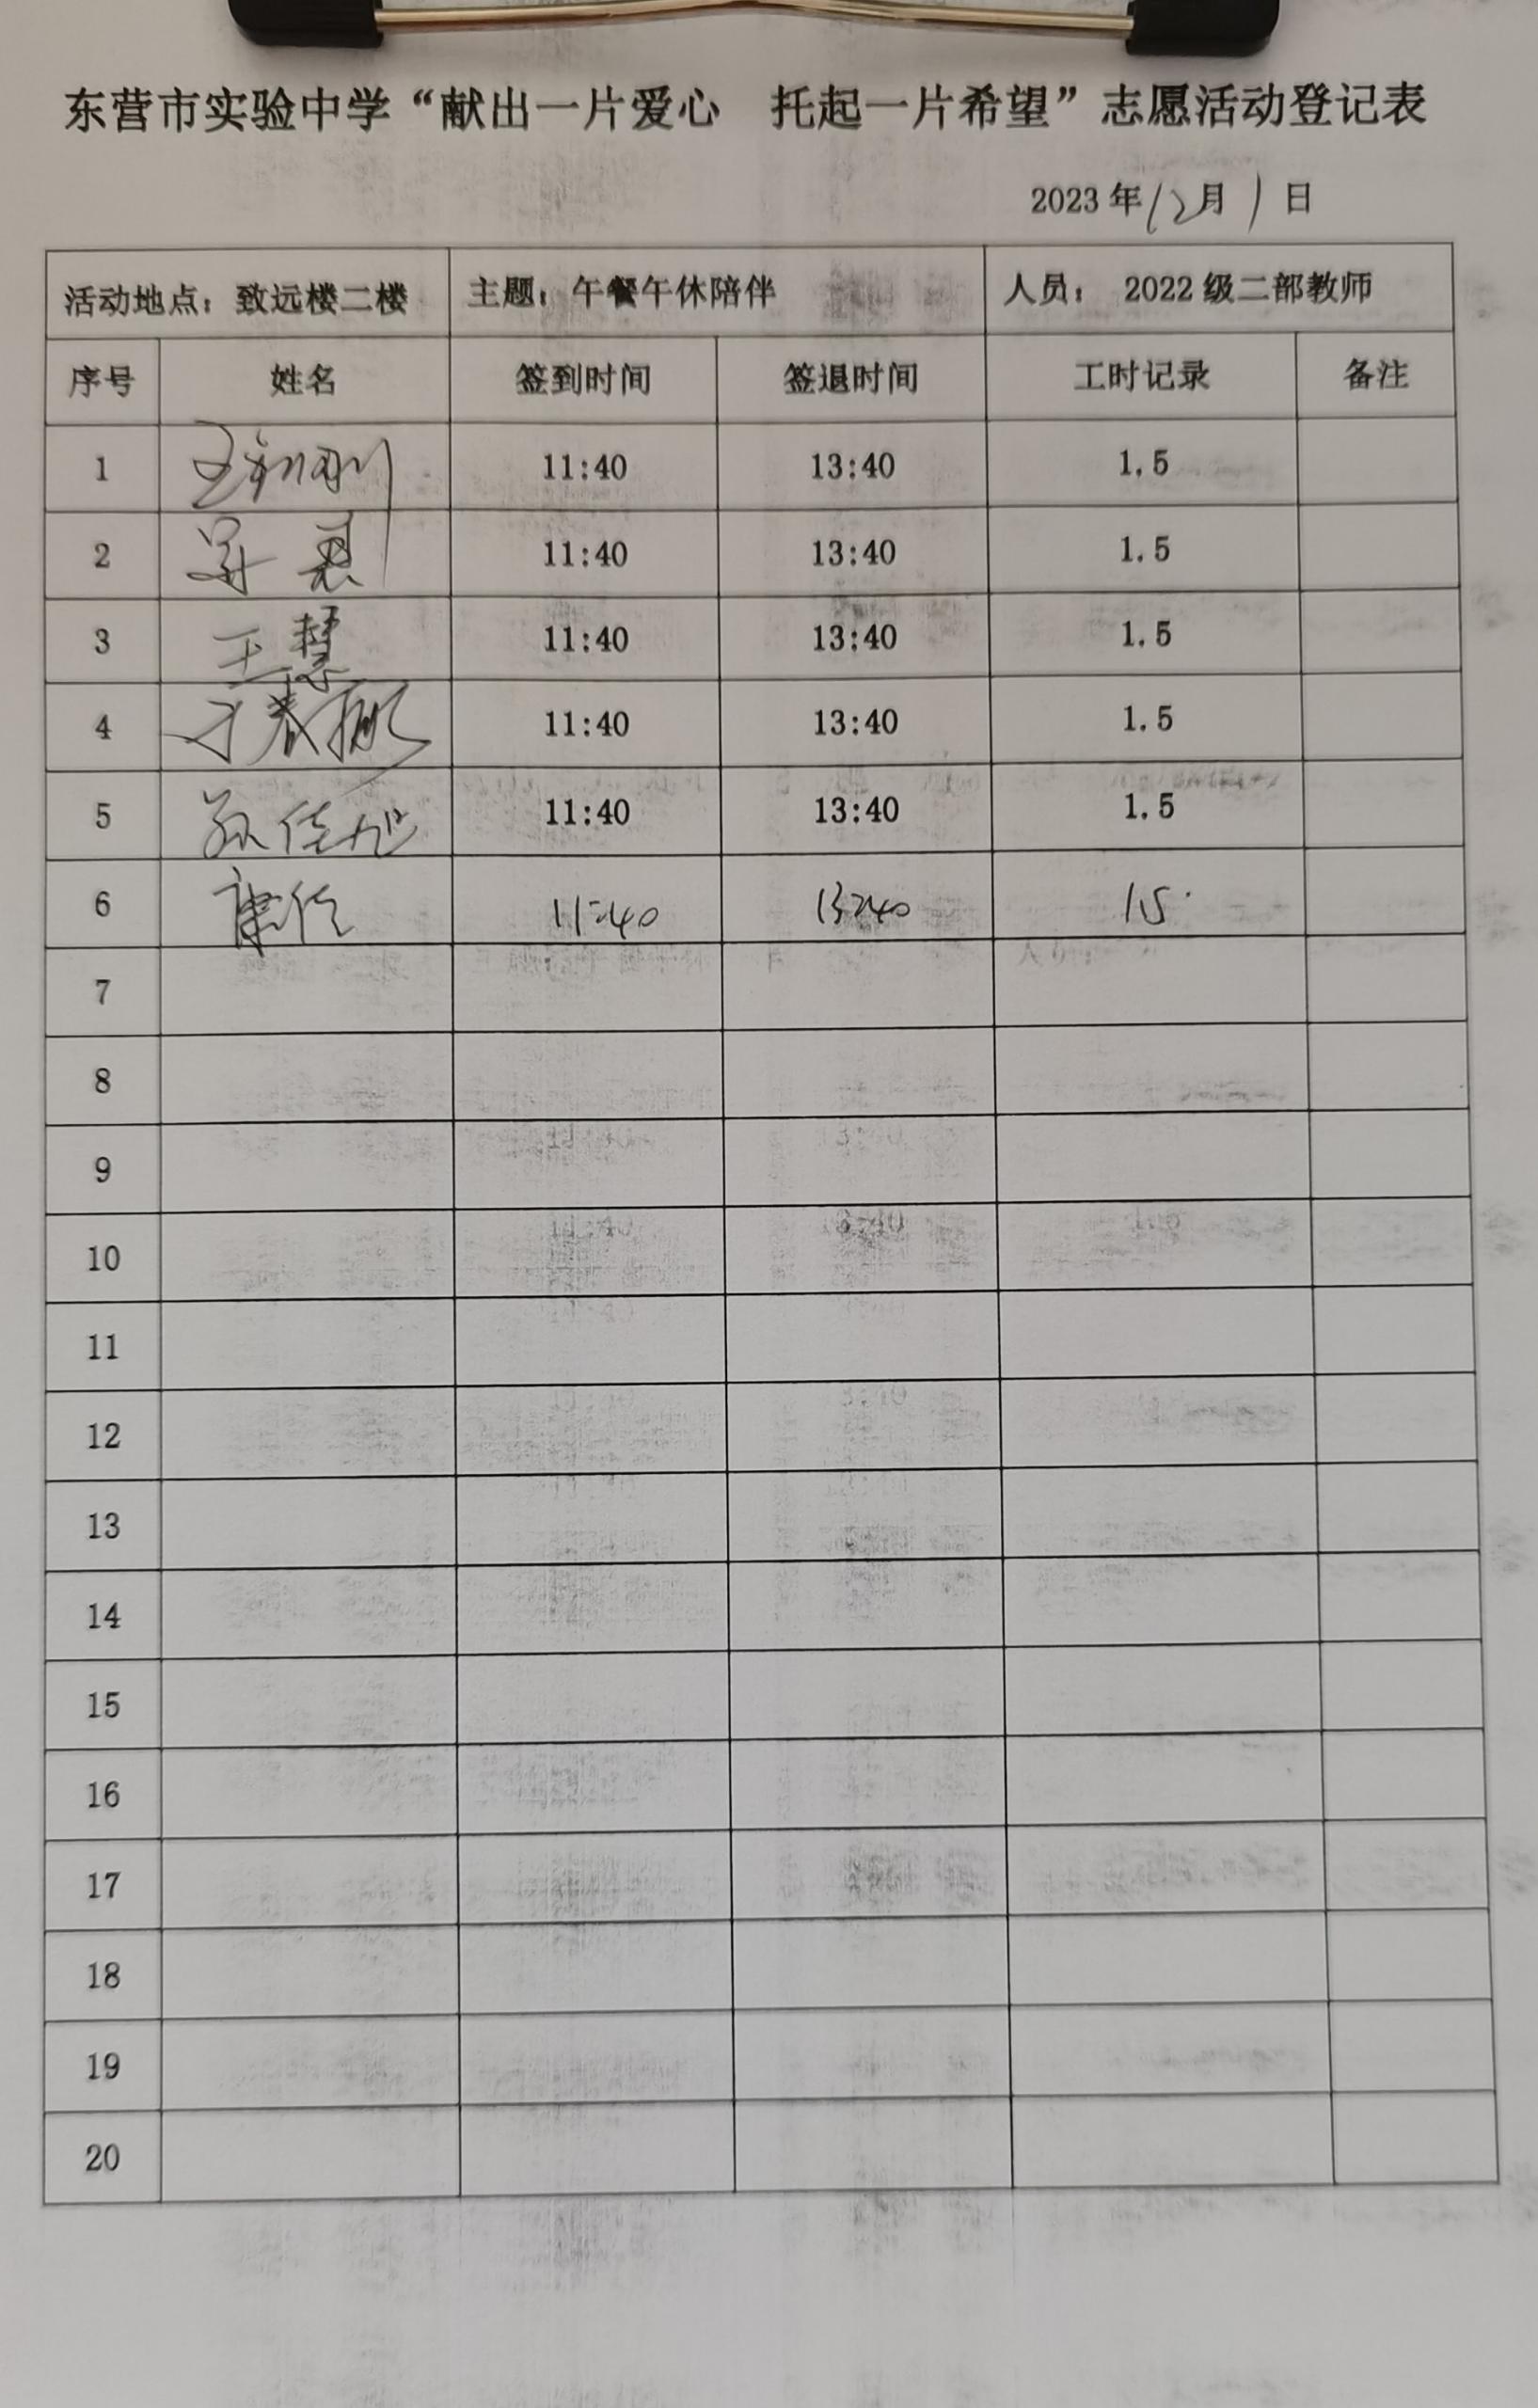 东营市实验中学“献出一片爱心 托起一片希望”志愿活动登记表
2023年12月1日
活动地点：致远楼二楼 主题：午餐午休陪伴 人员： 2022级二部教师
序号 姓名 签到时间 签退时间 工时记录 备注
1 11:40 13:40 1.5
2 11:40 13:40 1.5
3 王慧 11:40 13:40 1.5
4 11:40 13:40 1.5
5 11:40 13:40 1.5
6 11:40 13:40 1.5
7
8
9
10
11
12
13
14
15
16
17
18
19
20